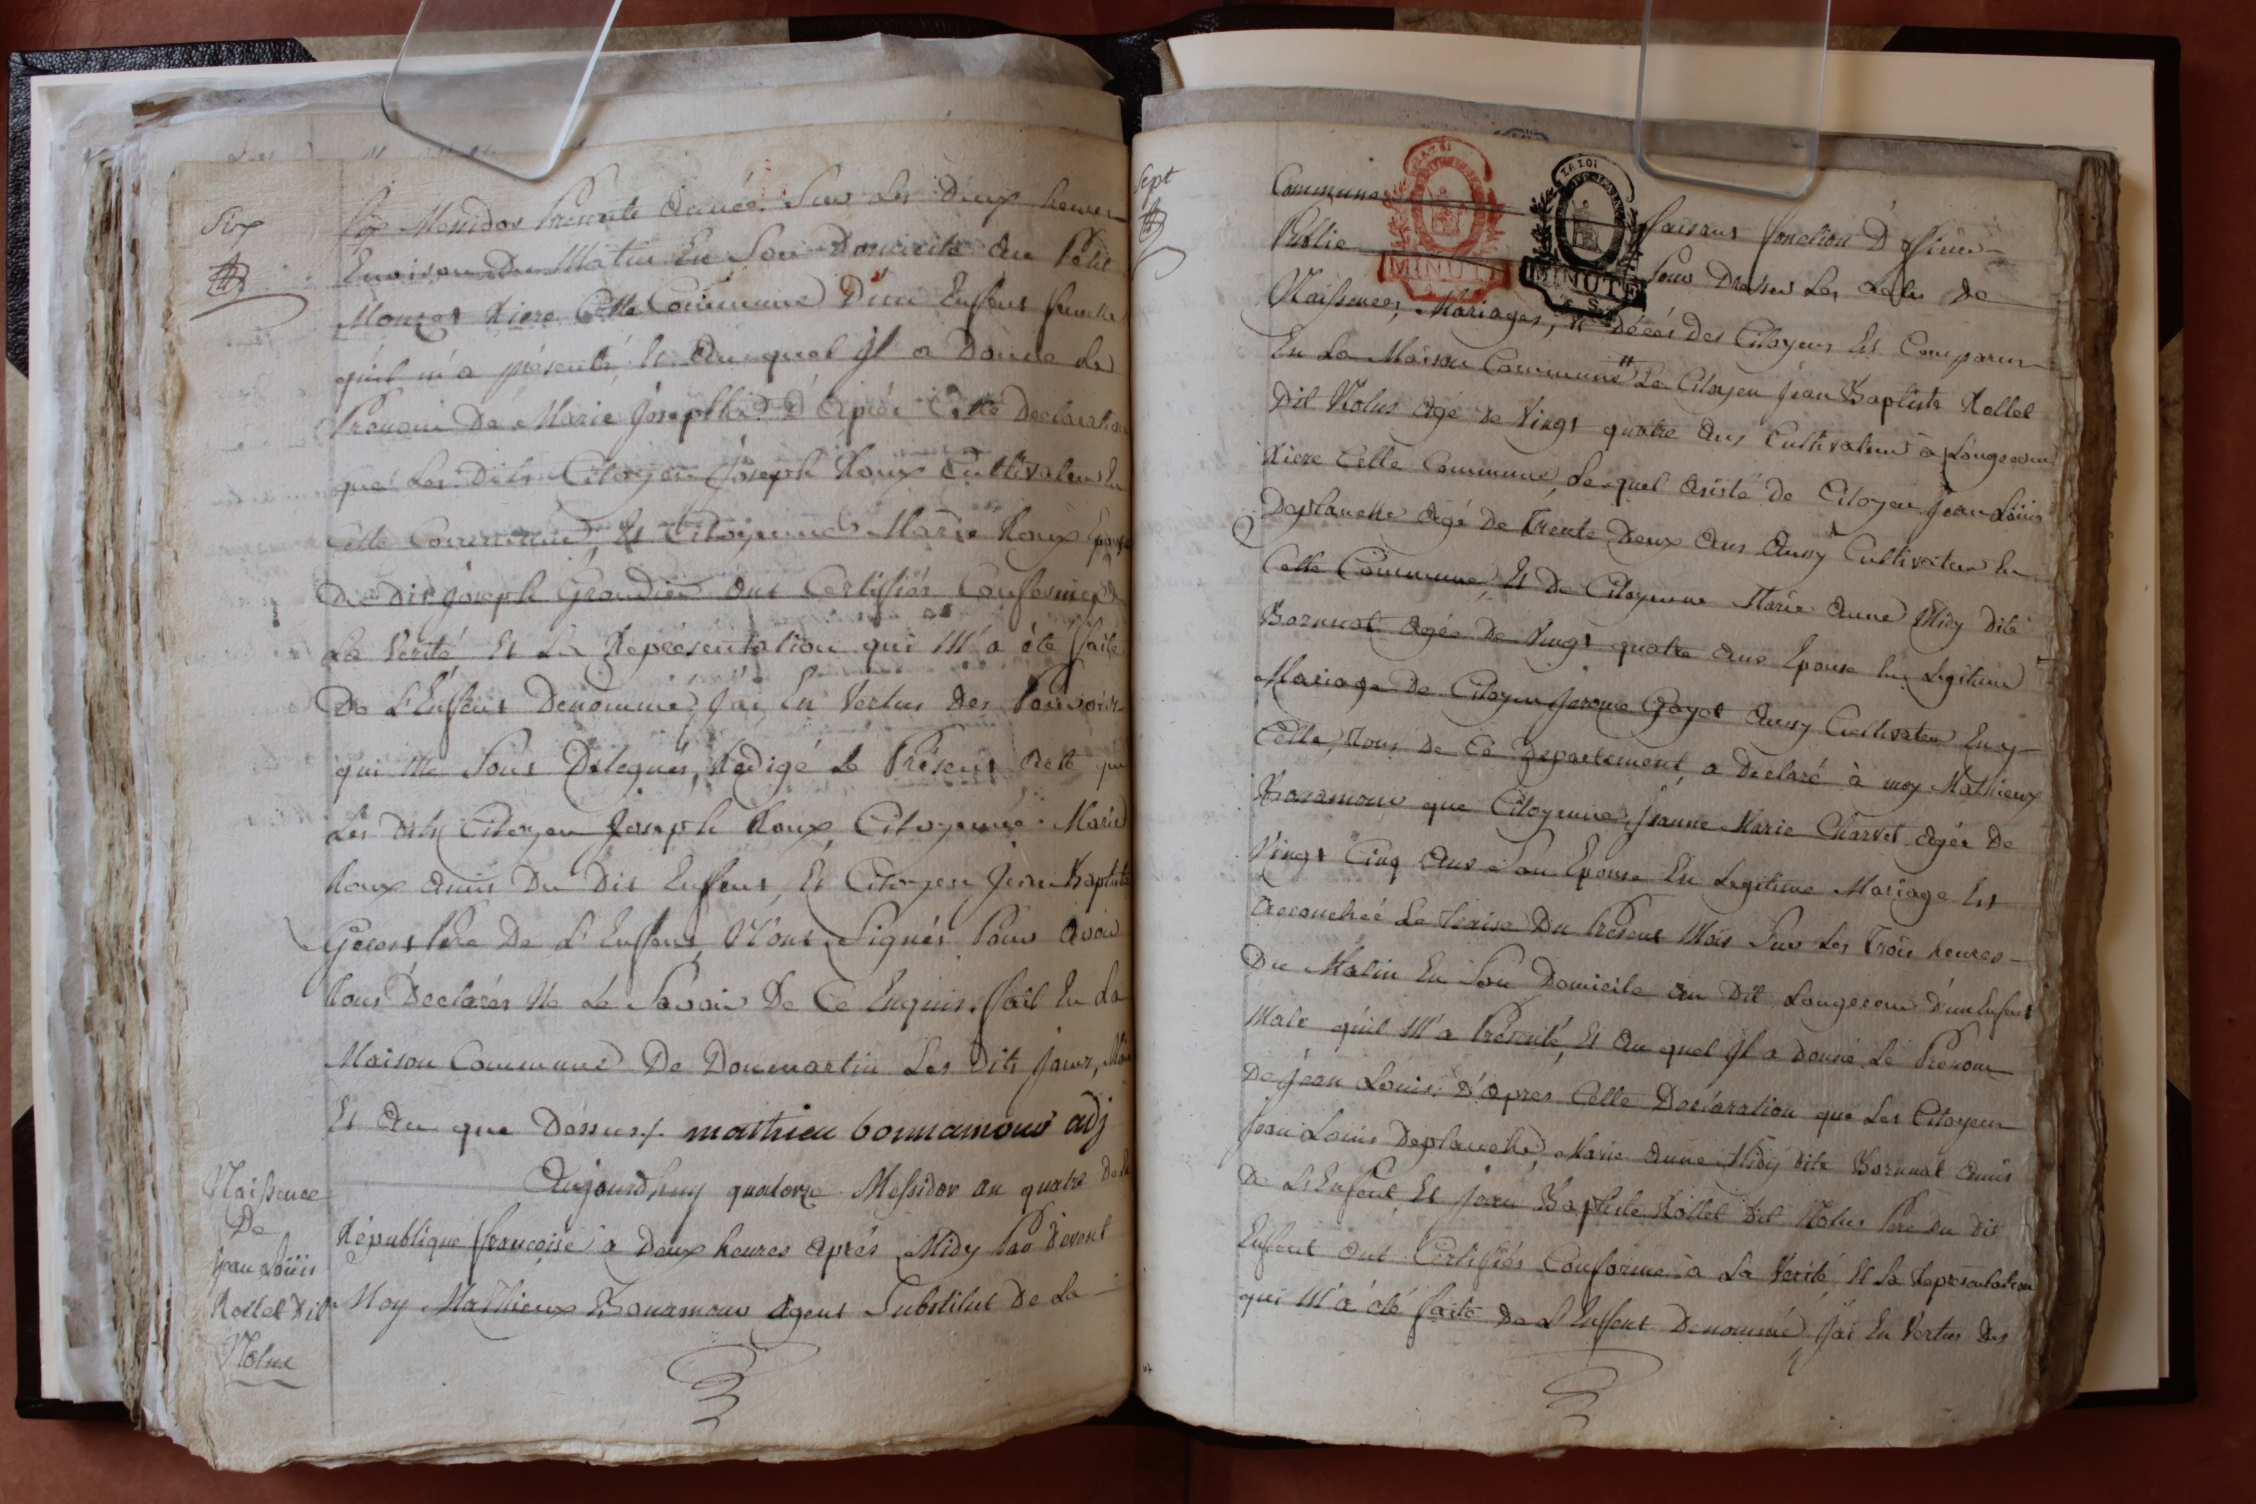 Six
Six Messidor Presente Année Sur Les Deux heures
Environ Du Matin En Son Domicile Au Petit
Monzet Riere Cette Commune D'un Enfant femelle
qu'il m'a présenté, Et Au quel Jl a Donné Le
Prenom De Marie Josephte D'Après Cette Declaration
que Les Dits Citoyen Joseph Roux Cultivateur En
Cette Commune, Et Citoyenne Marie Roux Epouse
De Dit Joseph Grandin Ont Certiffiés Conforme à
La Verité Et La Représentation qui M'a été faite
De L'Enffent Denommé, J'ai En Vertus Des Pouvoirs
qui Me Sont Delegués, Redigé Le Présent Acte que
Les Dits Citoyen Joseph Roux, Citoyenne Marie
Roux amis Du Dit Enffent, Et Citoyen Jean Baptiste
Pere De L'Enffent, N'ont Signés Pour Avoir
Tous Déclarés Ne Le Savoir De Ce Enquis. Fait En La
Maison Commune De Donmartin Les Dits Jour, Mois
Et An que Dessus /. mathieu bonnamour adj
Naissence
De
Jean Loüis
Rollet Dit
Nolus
Aujourd'huy quatorze Messidor an quatre De la
République françoise à Deux heures Après Midy Par Devant
Moy Mathieux Bonamour Agent Substitut De La
Sept
Commune faisant fonction D'Officier
Public Pour Dresser Les Actes De
MINUTE
MINUTE
Naissences, Mariages, Et Décés Des Citoyens Est Comparus
En La Maison Commune Le Citoyen Jean Baptiste Rollet
Dit Nolus Agé De Vingt quatre Ans Cultivateur à Longeseau
Riere Cette Commune, Le quel Asisté De Citoyen Jean Loüis
Deplanche Agé De Trente Deux Ans Aussy Cultivateur En
Cette Commune, Et De Citoyenne Marie Anne Midy Dite
Agée De Vingt quatre Ans Epouse En Legitime
Mariage De Citoyen Jerome Goyot Aussy Cultivateur En
Cette, Tous De Ce Departement, a Declaré à moy Mathieux
Bonamour que Citoyenne Jeanne Marie Charvet Agée De
Vingt Cinq Ans Son Epouse En Legitime Mariage Est
Accouchée Le Treize Du Présent Mois Sur Les Trois heures
Du Matin En Son Domicile Au Dit Longeseau D'un Enffent
Male qu'il M'a Présenté, Et Au quel Jl a Donné Le Prenom
De Jean Louis. D'Apres Cette Declaration que Les Citoyens
Jean Louis Deplanche, Marie Anne Midy Dite amis
De L'Enffent, Et Jean Baptiste Rollet Dit Nolus Pere Du Dit
Enffent Ont Certiffiés Conforme à La Verité, Et La Representation
qui M'a été faite De L'Enffent Denommé, J'ai En Vertus Des